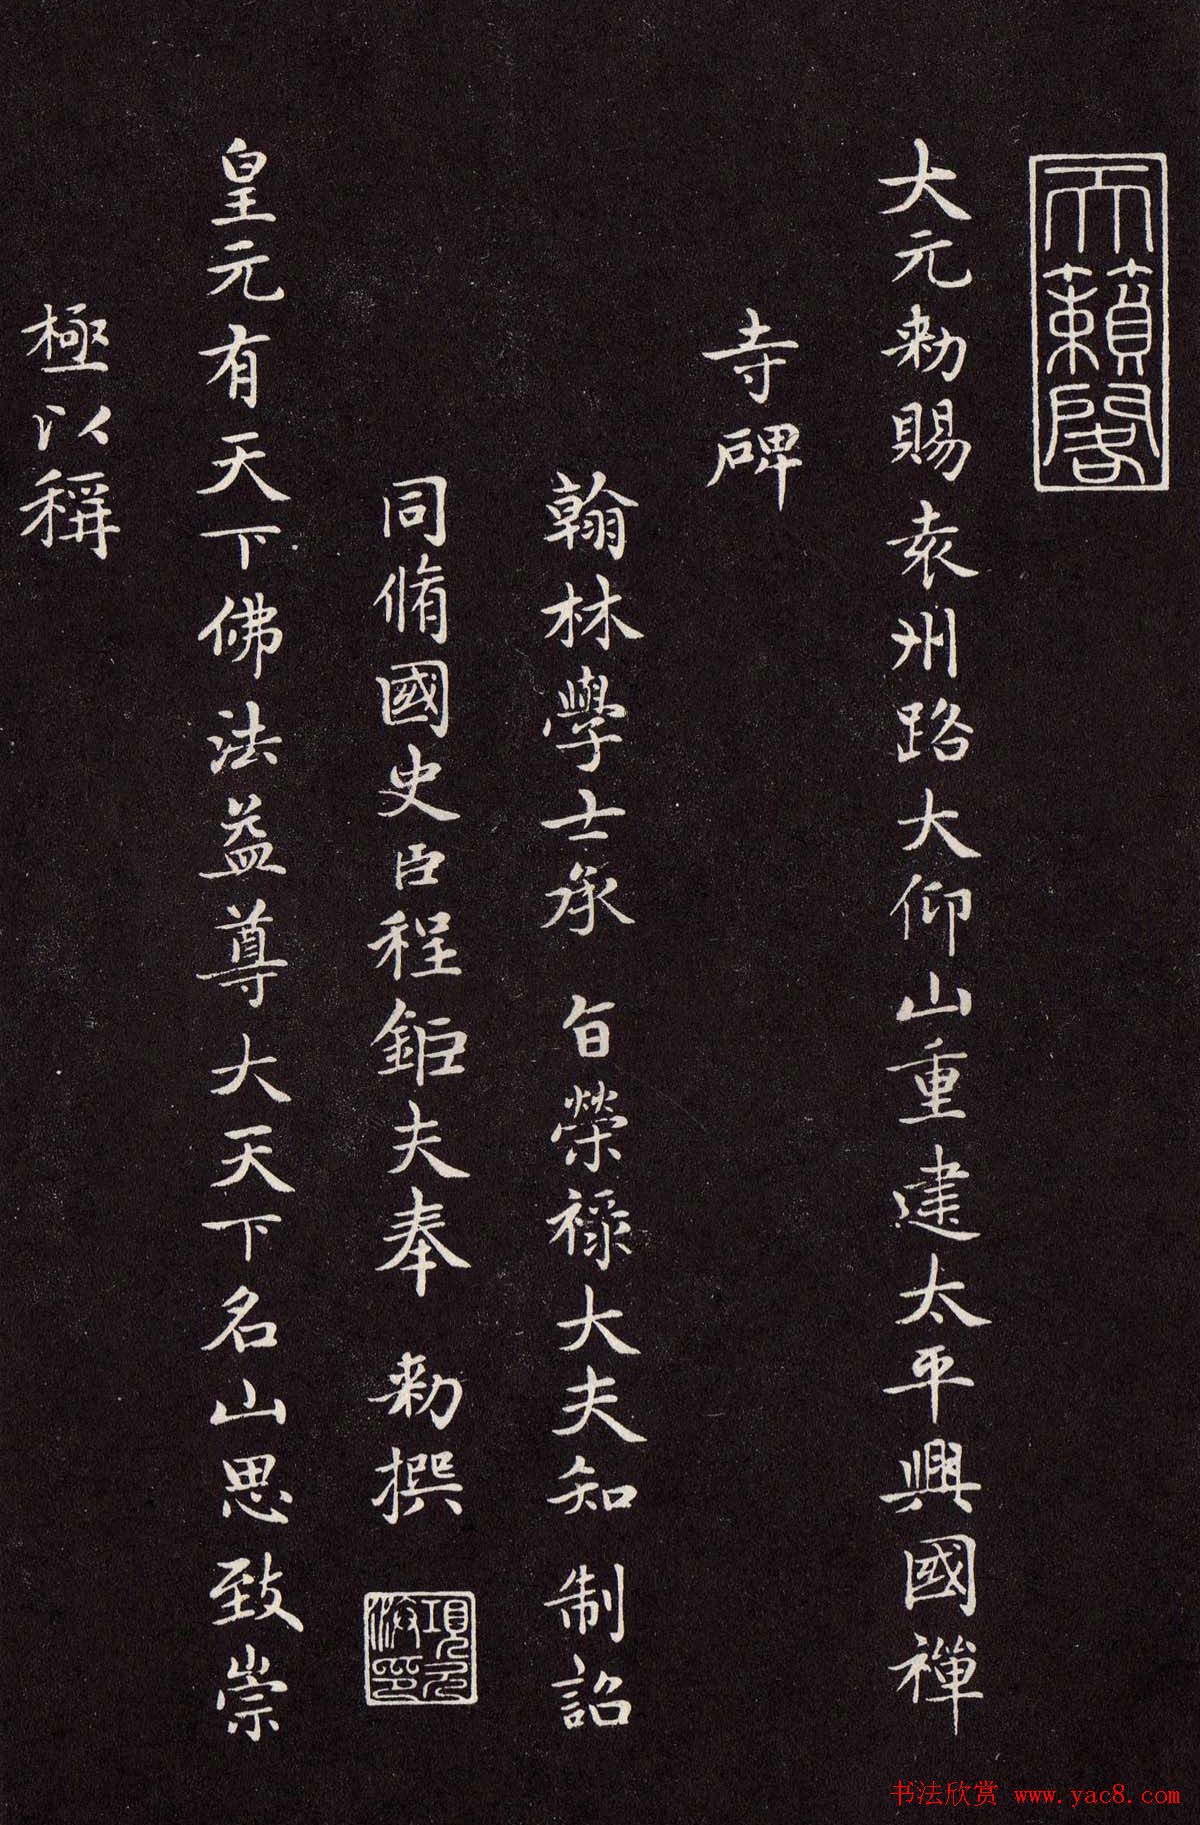 天籟閣
大元勑賜袁州路大仰山重建太平興國禪
寺碑
翰林學士承旨榮祿大夫知制詔
同脩國史臣程鉅夫奉勑撰
項元汴印
皇元有天下佛法益尊大天下名山思致崇
極以稱
书法欣赏 www.yac8.com